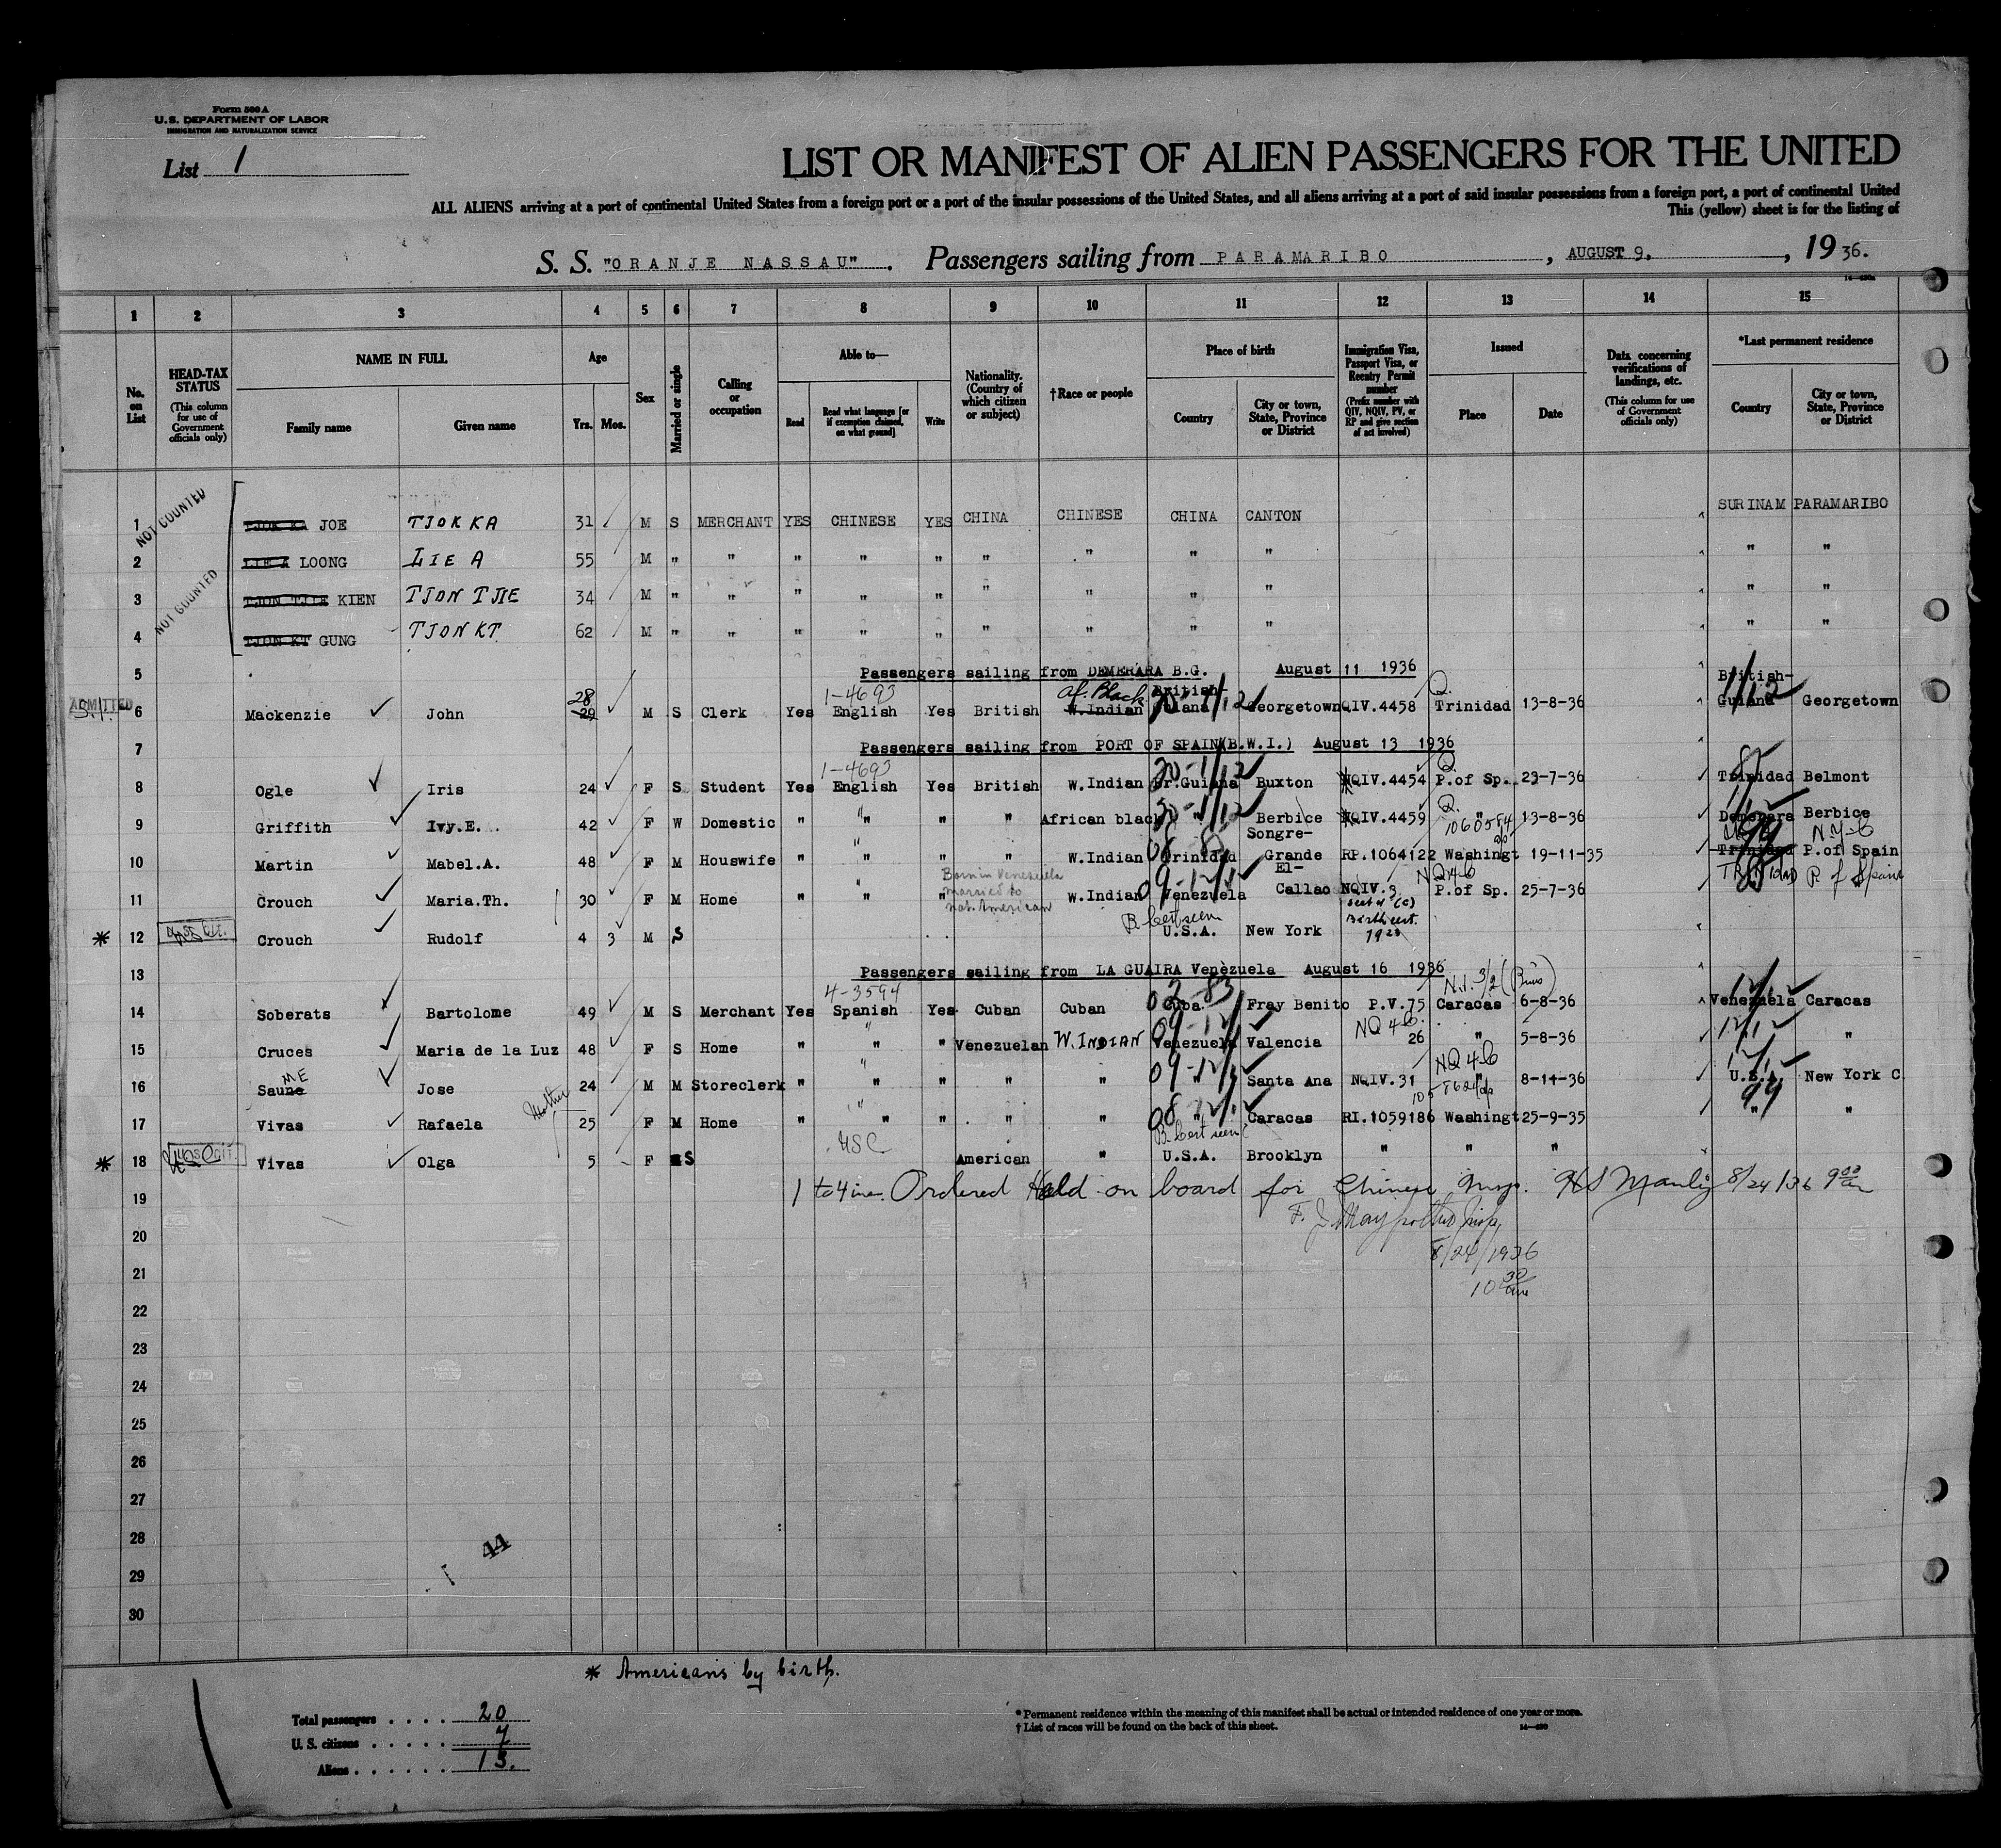 Form 500 A
U.S. DEPARTMENT OF LABOR
IMMIGRATION AND NATURALIZATION SERVICE
List 1
LIST OR MANIFEST OF ALIEN PASSENGERS FOR THE UNITED
ALL ALIENS arriving at a port of continental United States from a foreign port or a port of the insular possessions of the United States, and all aliens arriving at a port of said insular possessions from a foreign port, a port of continental United
This (yellow) sheet is for the listing of
S. S. "ORANJE NASSAU". Passengers sailing from PARAMARIBO, AUGUST 9, 1936.
1 2 3 4 5 6 7 8 9 10 11 12 13 14 15
No. on List
HEAD-TAX STATUS (This column for use of Government officials only)
NAME IN FULL Family name Given name
Age Yrs. Mos.
Sex
Married or single
Calling or occupation
Able to— Read Read what language [or if exemption claimed, on what ground] Write
Nationality. (Country of which citizen or subject)
†Race or people
Place of birth Country City or town, State, Province or District
Immigration Visa, Passport Visa, or Reentry Permit number (Prefix number with QIV, NQIV, PV, or RP and give section of act involved)
Issued Place Date
Data concerning verifications of landings, etc. (This column for use of Government officials only)
*Last permanent residence Country City or town, State, Province or District
NOT COUNTED
1 TJOK KA JOE TJOK KA 31 M S MERCHANT YES CHINESE YES CHINA CHINESE CHINA CANTON SURINAM PARAMARIBO
2 LIE A LOONG LIE A 55 M " " " " " " " " " " "
NOT COUNTED
3 TJON TJIE KIEN TJON TJIE 34 M " " " " " " " " " " "
4 TJON KT GUNG TJON KT 62 M " " " " " " " " " " "
5 Passengers sailing from DEMERARA B.G. August 11 1936
ADMITTED S.I.
6 Mackenzie John 28 29 M S Clerk Yes 1-4693 English Yes British Af. Black W.Indian British-Guiana Georgetown QIV.4458 Q. Trinidad 13-8-36 British-Guiana Georgetown
7 Passengers sailing from PORT OF SPAIN(B.W.I.) August 13 1936
8 Ogle Iris 24 F S Student Yes 1-4693 English Yes British W.Indian Br.Guiana Buxton NQIV.4454 Q. P.of Sp. 23-7-36 Trinidad Belmont
9 Griffith Ivy.E. 42 F W Domestic " " " " African black " Berbice NQIV.4459 Q. " 13-8-36 Demerara Berbice
10 Martin Mabel.A. 48 F M Houswife " " " " W.Indian Trinidad Songre-Grande RP.1064122 Washingt 19-11-35 Trinidad P.of Spain N.Y-C
11 Crouch Maria.Th. 30 F M Home " " " Born in Venezuela married to nat. American W.Indian Venezuela El-Callao NQIV.3 sect 4 (c) NQ4-b P.of Sp. 25-7-36 TRINIDAD P of Spain
* 12 Crouch Rudolf 4 3 M S B. Cert seen U.S.A. New York Birth cert.
13 Passengers sailing from LA GUAIRA Venèzuela August 16 1936
14 Soberats Bartolome 49 M S Merchant Yes 4-3594 Spanish Yes Cuban Cuban Cuba Fray Benito P.V.75 N.I. 3/2 Caracas 6-8-36 Venezuela Caracas
15 Cruces Maria de la Luz 48 F S Home " " " Venezuelan W.INDIAN Venezuela Valencia NQ 4-b. 26 " 5-8-36 "
16 Saune ME Jose 24 M M Storeclerk " " " " " " Santa Ana NQIV.31 NQ 4-b " 8-14-36 U.S.A. New York C
17 Vivas Rafaela Mother 25 F M Home " " " " " " Caracas RI.1059186 Washingt 25-9-35 " "
* 18 Vivas Olga 5 F S USC American " B. Cert seen U.S.A. Brooklyn " " "
19 1 to 4 inc. Ordered Held on board for Chinese Insp. 8/24/36 9 00 am
20
8/24/1936
21 10 30 am
22
23
24
25
26
27
28
44
29
30
* Americans by birth.
Total passengers . . . . 20
U. S. citizens . . . . . 7
Aliens . . . . . . 13.
*Permanent residence within the meaning of this manifest shall be actual or intended residence of one year or more.
†List of races will be found on the back of this sheet.